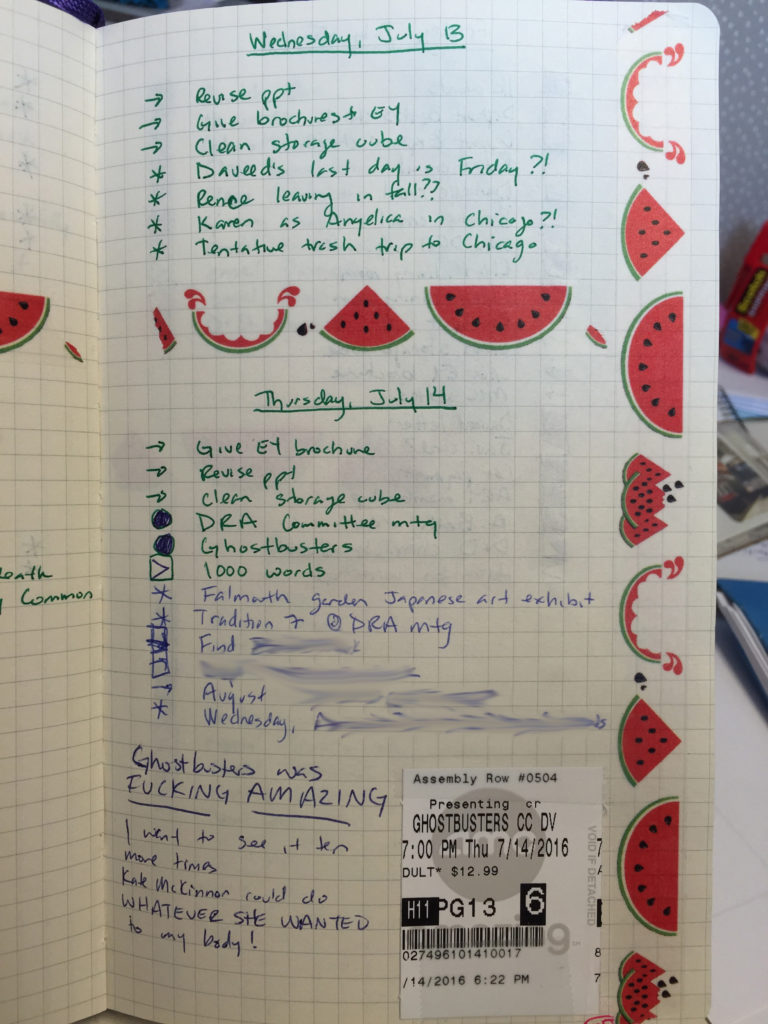 Wednesday, July 13
→ Revise ppt
→ Give brochures → EY
→ Clean storage cube
* Daveed's last day is Friday?!
* Renee leaving in fall??
* Karen as Angelica in Chicago?!
* Tentative trash trip to Chicago
Thursday, July 14
→ Give EY brochure
→ Revise ppt
→ Clean storage cube
DRA Committee mtg
Ghostbusters
> 1000 words
* Falmouth garden Japanese art exhibit
* Tradition 7 @ DRA mtg
Find
August
* Wednesday,
Common
Ghostbusters was
FUCKING AMAZING
I want to see it ten
more times
Kate McKinnon could do
WHATEVER SHE WANTED
to my body!
Assembly Row #0504
Presenting cr
GHOSTBUSTERS CC DV
7:00 PM Thu 7/14/2016
DULT* $12.99
H11 PG13 6
027496101410017
/14/2016 6:22 PM
VOID IF DETACHED
7
8
7
Scotch